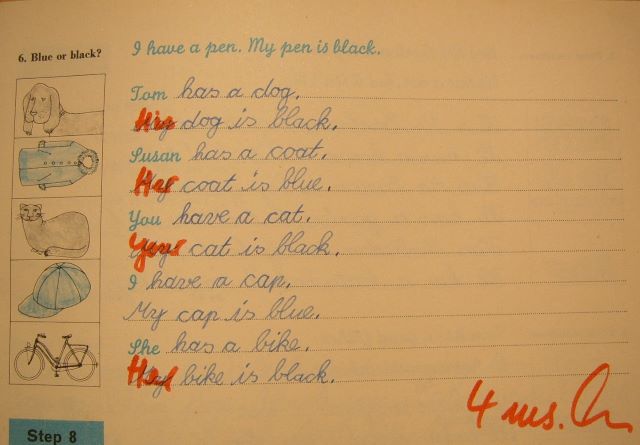 6. Blue or black?
I have a pen. My pen is black.
Tom has a dog.
His dog is black.
Susan has a coat.
Her coat is blue.
You have a cat.
Your cat is black.
I have a cap.
My cap is blue.
She has a bike.
Her bike is black.
4 ms.
Step 8